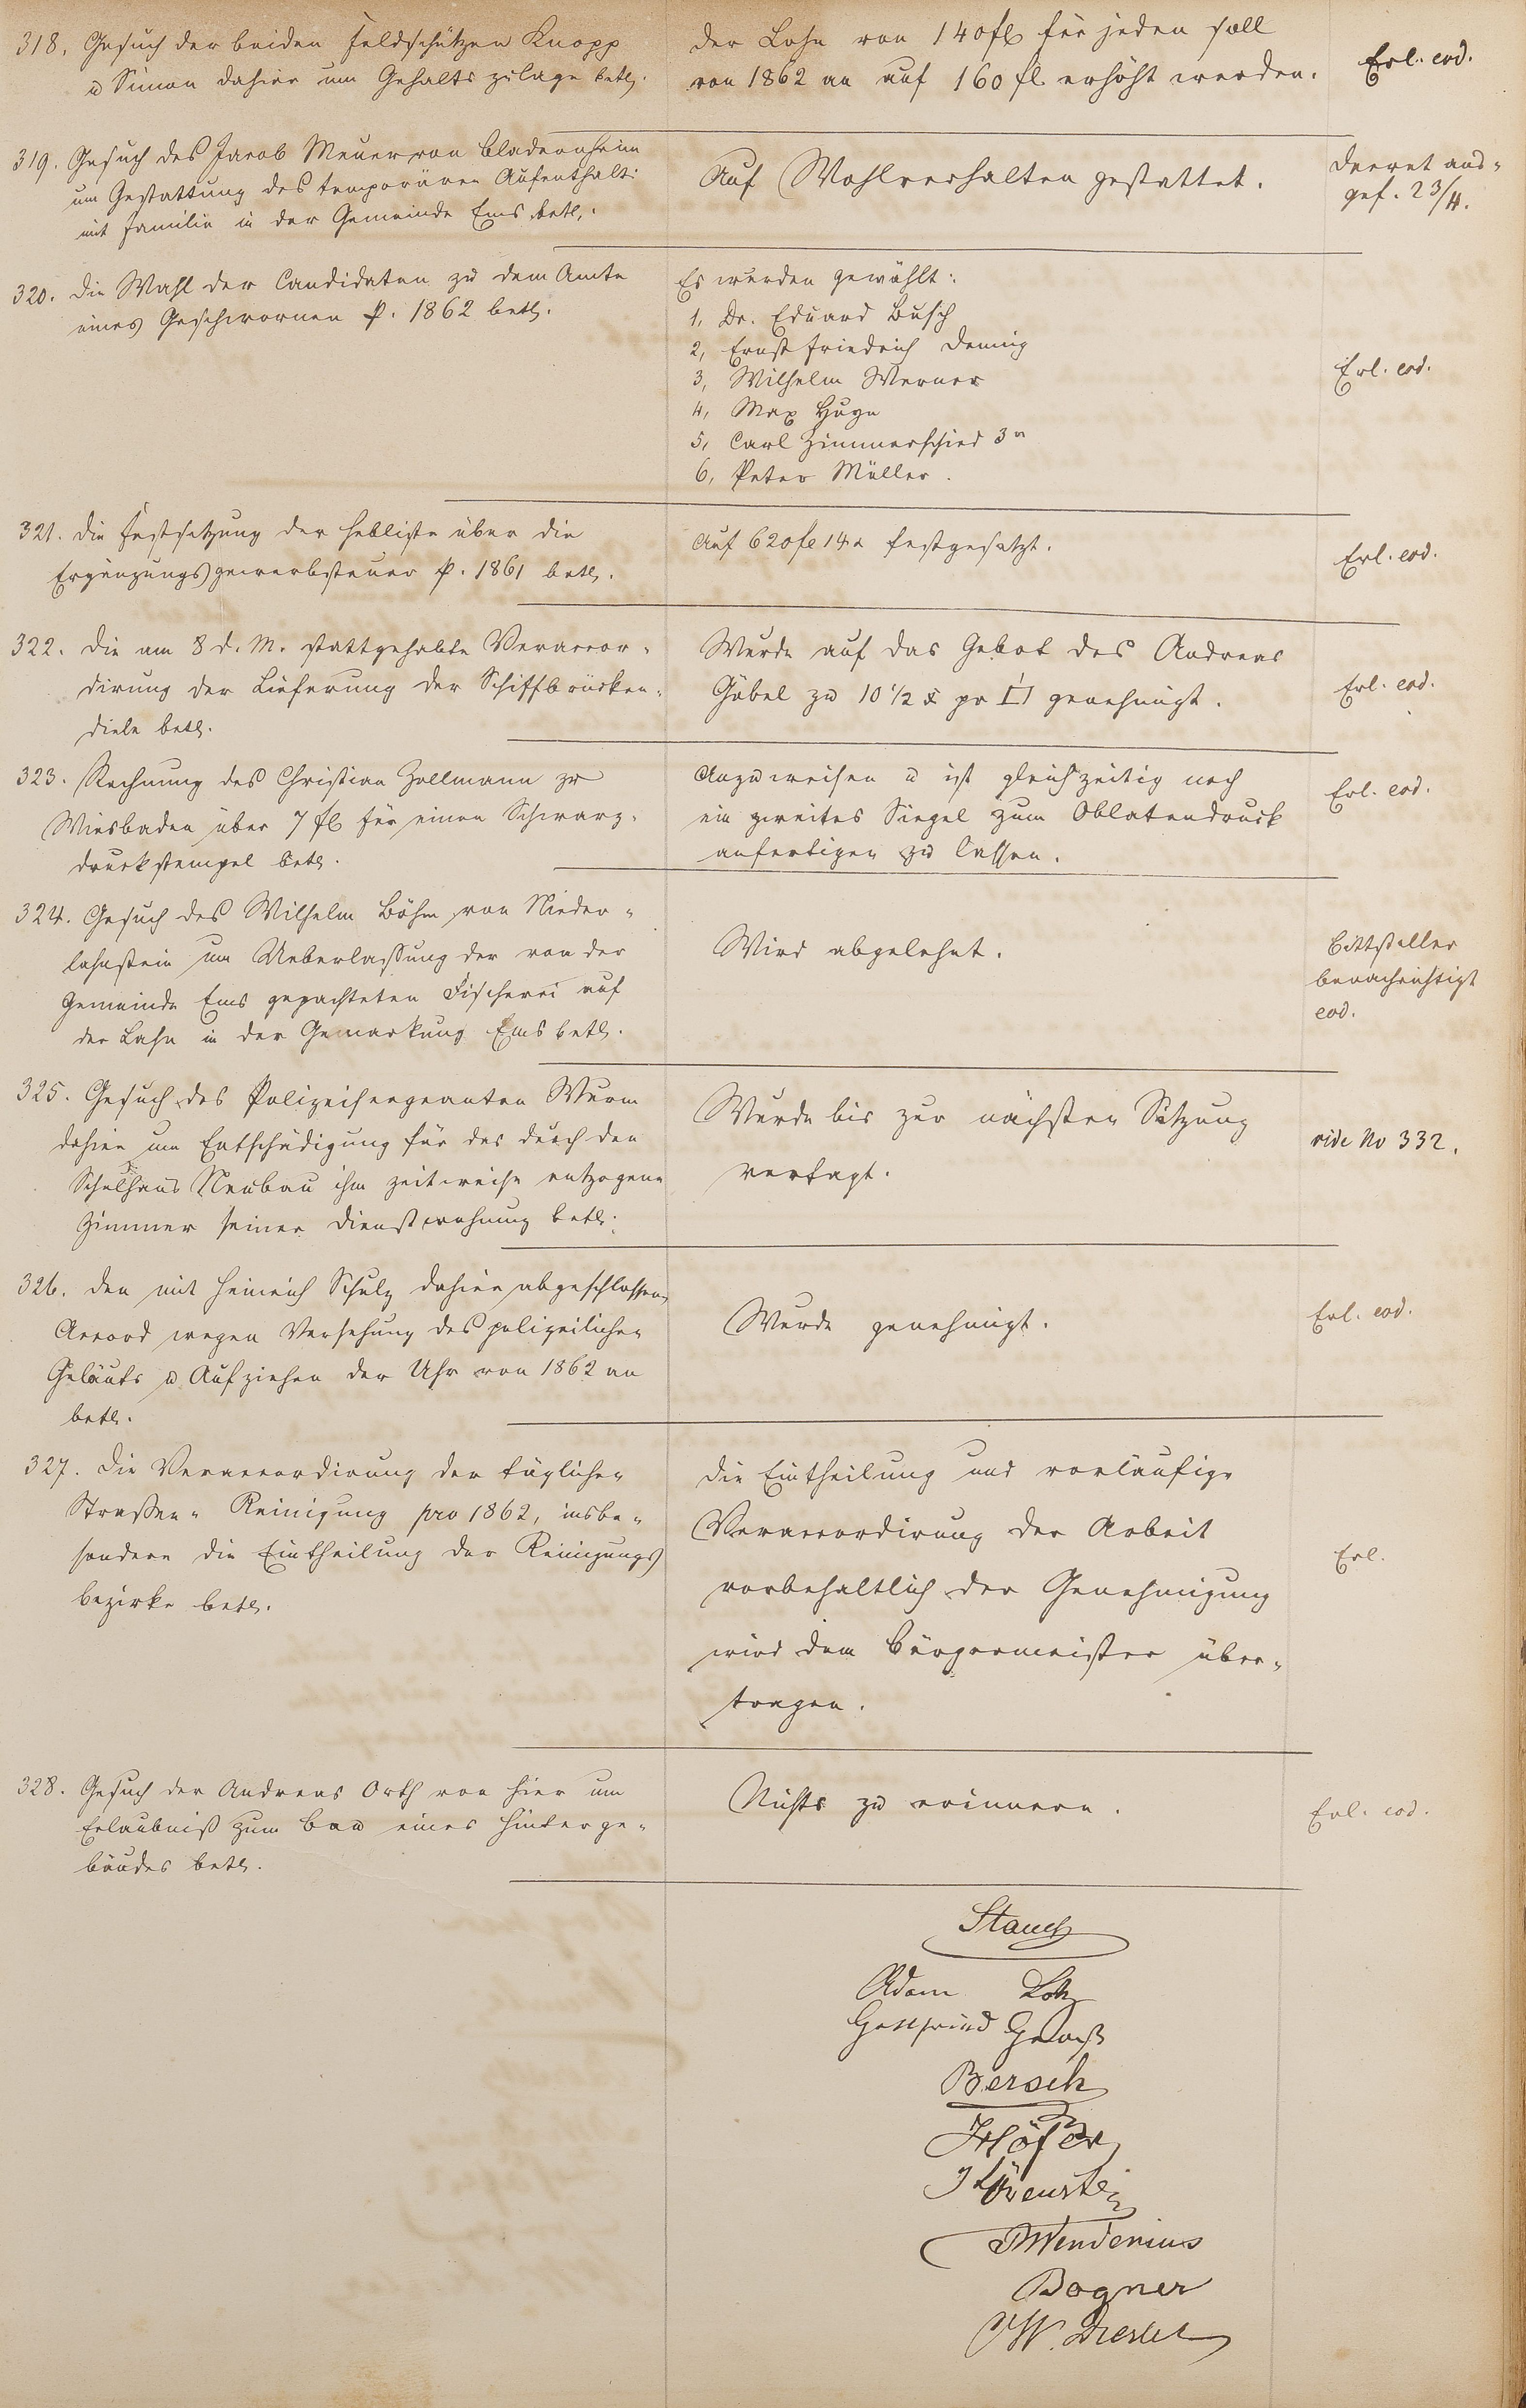 318. Gesuch der beiden Feldschützen Knopp
u Simon dahier um Gehaltszulage betr.
Der Lohn von 140 fl für jeden soll
von 1862 an auf 160 fl erhöht werden.
Erl. eod.
319. Gesuch des Jacob Meuer von Cladernheim
um Gestattung des temporären Aufenthalts
mit Familie in der Gemeinde Ems betr.
Auf Wohlverhalten gestattet.
Decret aus-
gef. 23/4.
320. Die Wahl der Candidaten zu dem Amte
eines Geschwornen p. 1862 betr.
Es wurden gewählt:
1, Dr. Eduard Busch
2, Ernst Friedrich Deming
3, Wilhelm Werner
4, Max Huyn
5, Carl Zimmerschied 3r
6, Peter Müller.
Erl. eod.
321. Die Festsetzung der Hebliste über die
Ergänzungsgewerbsteuer p. 1861 betr.
Auf 620 fl 14 x festgesetzt.
Erl. eod.
322. Die am 8 d. M. stattgehabte Veraccor-
dirung der Lieferung der Schiffbrücken-
diele betr.
Wurde auf das Gebot des Andreas
Göbel zu 10 1/2 x pr □' genehmigt.
Erl. eod.
323. Rechnung des Christian Zollmann zu
Wiesbaden über 7 fl für einen Schwarz-
druckstempel betr.
Anzuweisen u ist gleichzeitig noch
ein zweites Siegel zum Oblatendruck
anfertigen zu lassen.
Erl. eod.
324. Gesuch des Wilhelm Böhm von Nieder-
lahnstein um Ueberlassung der von der
Gemeinde Ems gepachteten Fischerei auf
der Lahn in der Gemarkung Ems betr.
Wird abgelehnt.
Bittsteller
benachrichtigt
eod.
325. Gesuch des Polizeisergeanten Wurm
dahier um Entschädigung für das durch den
Schulhaus Neubau ihm zeitweise entzogene
Zimmer seiner Dienstwohnung betr.
Wurde bis zur nächsten Sitzung
vertagt.
vide No 332.
326. Den mit Heinrich Schulz dahier abgeschlossen
Accord wegen Versehung des polizeilichen
Geläuts u Aufziehen der Uhr von 1862 an
betr.
Wurde genehmigt.
Erl. eod.
327. Die Veraccordirung der täglichen
Straßen- Reinigung pro 1862, insbe-
sondere die Eintheilung der Reinigungs
bezirke betr.
Die Eintheilung und vorläufige
Veraccordirung der Arbeit
vorbehaltlich der Genehmigung
wird dem Bürgermeister über-
tragen.
Erl.
328. Gesuch der Andreas Orth von hier um
Erlaubniß zum Bau eines Hinterge-
bäudes betr.
Nichts zu erinnern.
Erl. eod.
Stauch
Adam Lotz
Gottfried
Bersch
Höfer
J Löwenstein
Wendenius
Bogner
W. Diesler